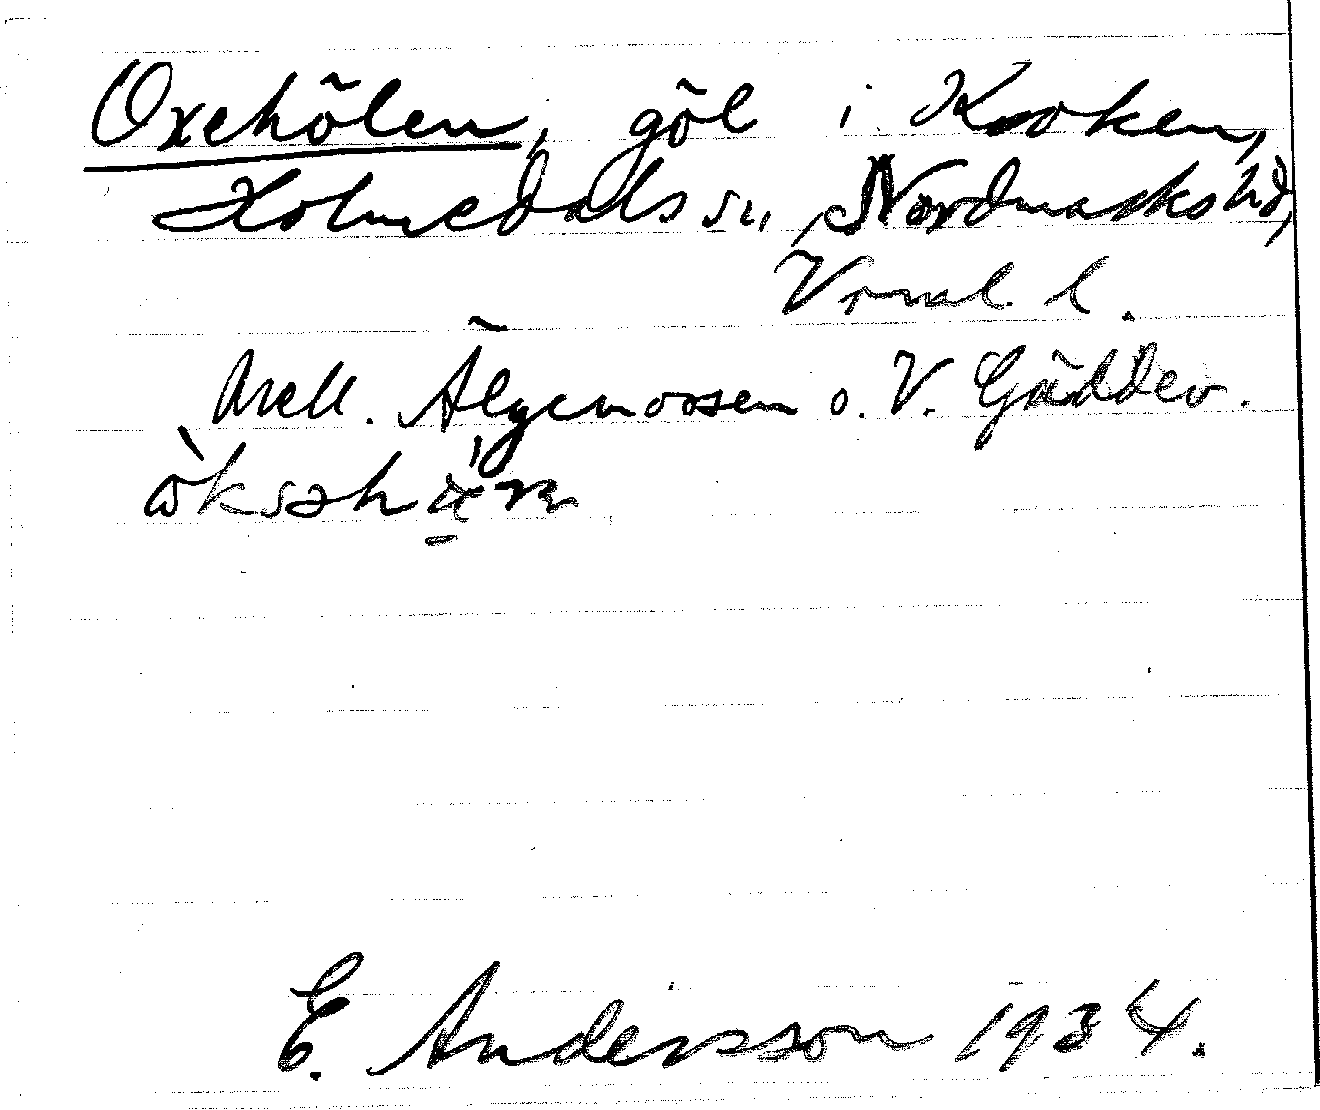 Oxehölen, göl i Kroken,
Holmedals sn, Nordmarks hd,
Vrml. l.
Mell. Älgemossen o. V. Gäddev.
E. Andersson 1934.